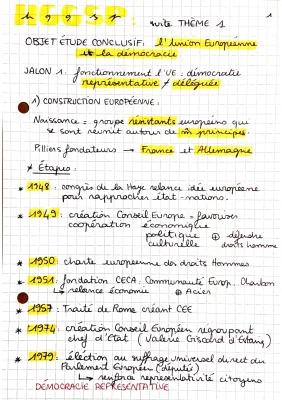 HGGSP: suite THÈME 1
1
OBJET ÉTUDE CONCLUSIF: l'Union Européenne
et la démocratie
JALON 1: fonctionnement l'UE: démocratie
représentative ≠ déléguée
1) CONSTRUCTION EUROPÉENNE:
Naissance = groupe résistants européens qui
se sont réunit autour de m̂ principes.
Pilliers fondateurs → France et Allemagne
* Étapes:
* 1948: congrès de la Haye relance idée européenne
pour rapprocher état-nations.
* 1949: création Conseil Europe = favoriser
coopération économique
politique ⊕ défendre
culturelle droits homme
* 1950: charte européenne des droits Hommes
* 1951: fondation CECA: Communauté Europ. Charbon
↳ relance économie ⊕ Acier
* 1957: Traité de Rome créant CEE
* 1974: création Conseil Européen regroupant
chef d'Etat (Valérie Giscard d'Estaing)
* 1979: élection au suffrage universel direct du
Parlement Européen (députés)
↳ renforce représentativité citoyens
DÉMOCRATIE REPRÉSENTATIVE